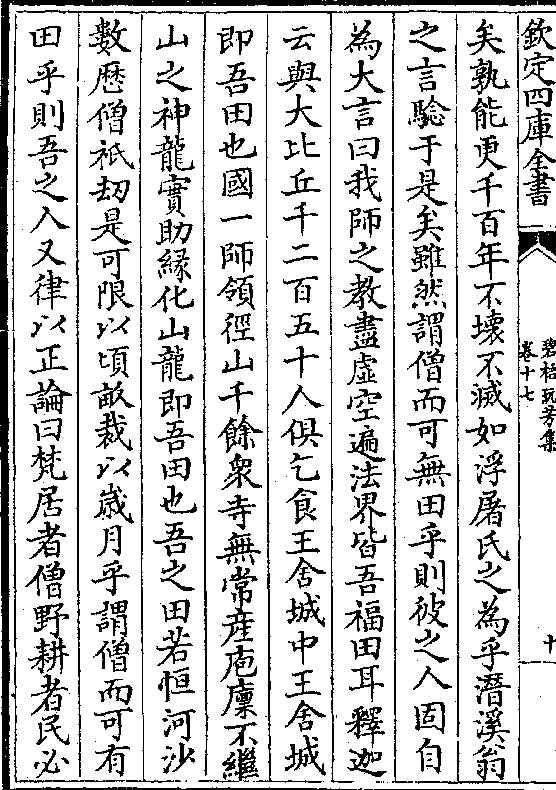 欽定四庫全書
碧梧玩芳集
卷十七
十
矣孰能更千百年不壞不滅如浮屠氏之為乎潛溪翁
之言驗于是矣雖然謂僧而可無田乎則彼之人固自
為大言曰我師之教盡虛空遍法界皆吾福田耳釋迦
云與大比丘千二百五十人俱乞食王舍城中王舍城
即吾田也國一師領徑山千餘衆寺無常産庖廩不繼
山之神龍實助縁化山龍即吾田也吾之田若恒河沙
數歴僧祇劫是可限以頃畝裁以歳月乎謂僧而可有
田乎則吾之人又律以正論曰梵居者僧野耕者民必